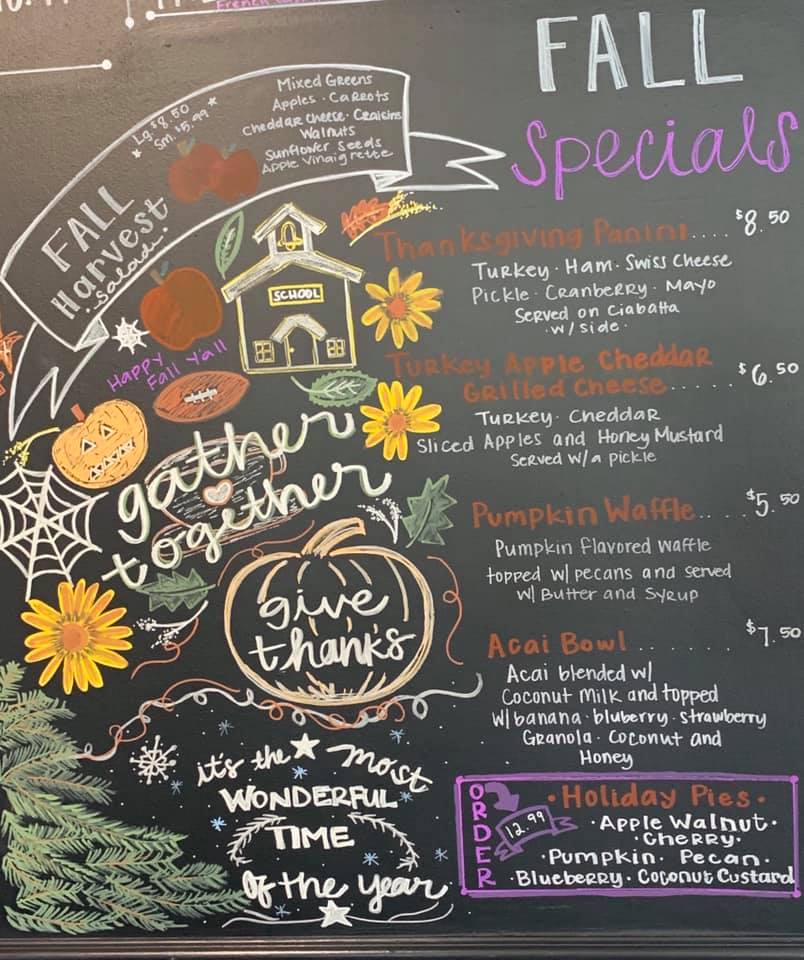 FALL
Specials
Lg. $8.50
Sm. $5.99
Mixed Greens
Apples · Carrots
Cheddar Cheese · Craisins
Walnuts
Sunflower Seeds
Apple Vinaigrette
FALL
Harvest
Salad
SCHOOL
Happy
Fall Y'all
gather
together
give
thanks
it's the most
WONDERFUL
TIME
Of the year
Thanksgiving Panini.... $8.50
Turkey · Ham · Swiss Cheese
Pickle · Cranberry · Mayo
Served on Ciabatta
w/ side ·
Turkey Apple Cheddar
Grilled Cheese...... $6.50
Turkey · Cheddar
Sliced Apples and Honey Mustard
Served w/a pickle
Pumpkin Waffle... $5.50
Pumpkin flavored waffle
topped w/ pecans and served
w/ Butter and Syrup
Acai Bowl ....... $7.50
Acai blended w/
Coconut Milk and topped
w/ banana · bluberry · strawberry
Granola · Coconut and
Honey
ORDER
12.99
· Holiday Pies ·
· Apple Walnut ·
· Cherry ·
· Pumpkin · Pecan ·
· Blueberry · Coconut Custard